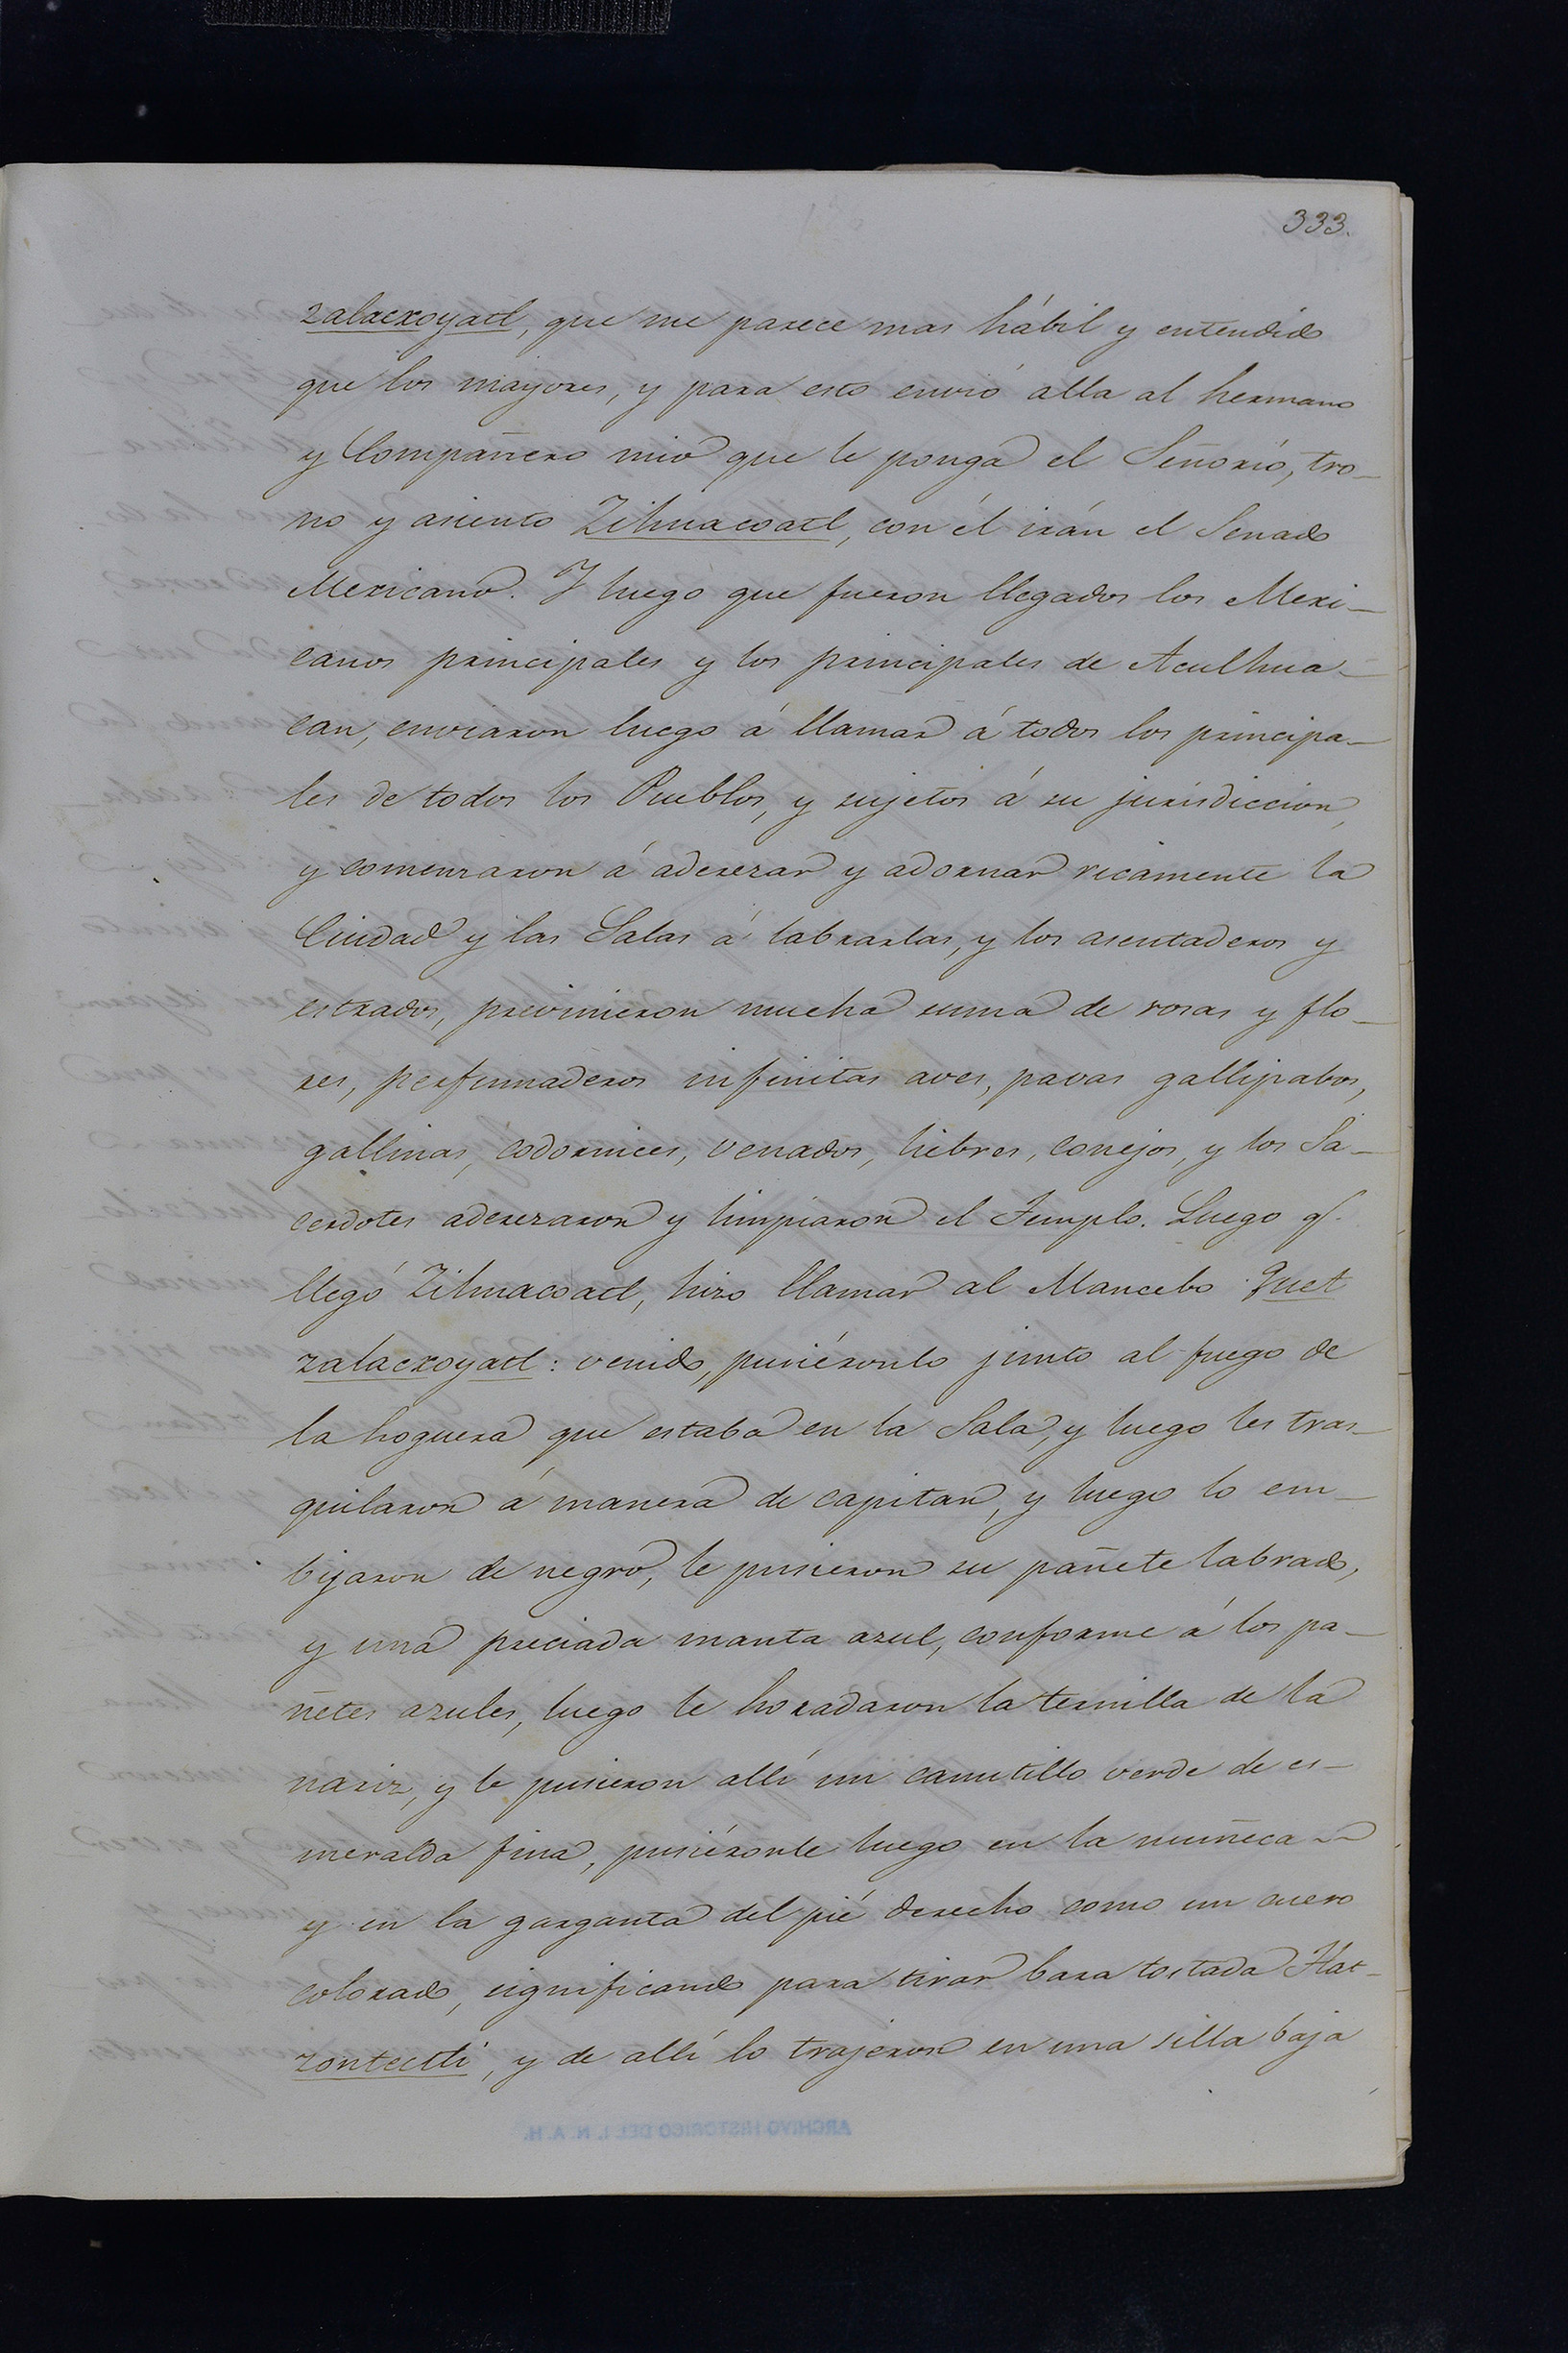 333.
zalacxoyatl, que me parece mas hábil y entendido
que los mayores, y para esto envió alla al hermano
y Compañero mio que le ponga el Señorió, tro-
no y asiento Zihuacoatl, con él irán el Senado
Mexicano. Y luego que fueron llegados los Mexi-
canos principales y los principales de Aculhua-
can, enviaron luego á llamar á todos los principa-
les de todos los Pueblos, y sujetos á su jurisdiccion,
y comenzaron á aderezar y adornar ricamente la
Ciudad y las Salas á labrarlas, y los asentaderos y
estrados, previnieron mucha suma de rosas y flo-
res, perfumaderos infinitas aves, pavas gallipabos,
gallinas, codornices, venados, liebres, conejos, y los Sa-
cerdotes aderezaron y limpiaron el Templo. Luego q.
llegó Zihuacoatl, hizo llamar al Mancebo Quet
zalacxoyatl: venido, pusiéronlo junto al fuego de
la hoguera que estaba en la Sala, y luego les tras-
quilaron á manera de capitan, y luego lo em-
bijaron de negro, le pusieron su pañete labrado,
y una preciada manta azul, conforme á los pa-
ñetes azules, luego le horadaron la ternilla de la
nariz, y le pusieron allí un canutillo verde de es-
meralda fina, pusiéronle luego en la muñeca
y en la garganta del pié derecho como un cuero
colorado, significando para tirar bara tostada Tlat-
zontectli, y de allí lo trajeron en una silla baja
ARCHIVO HISTORICO DEL I. N. A. H.